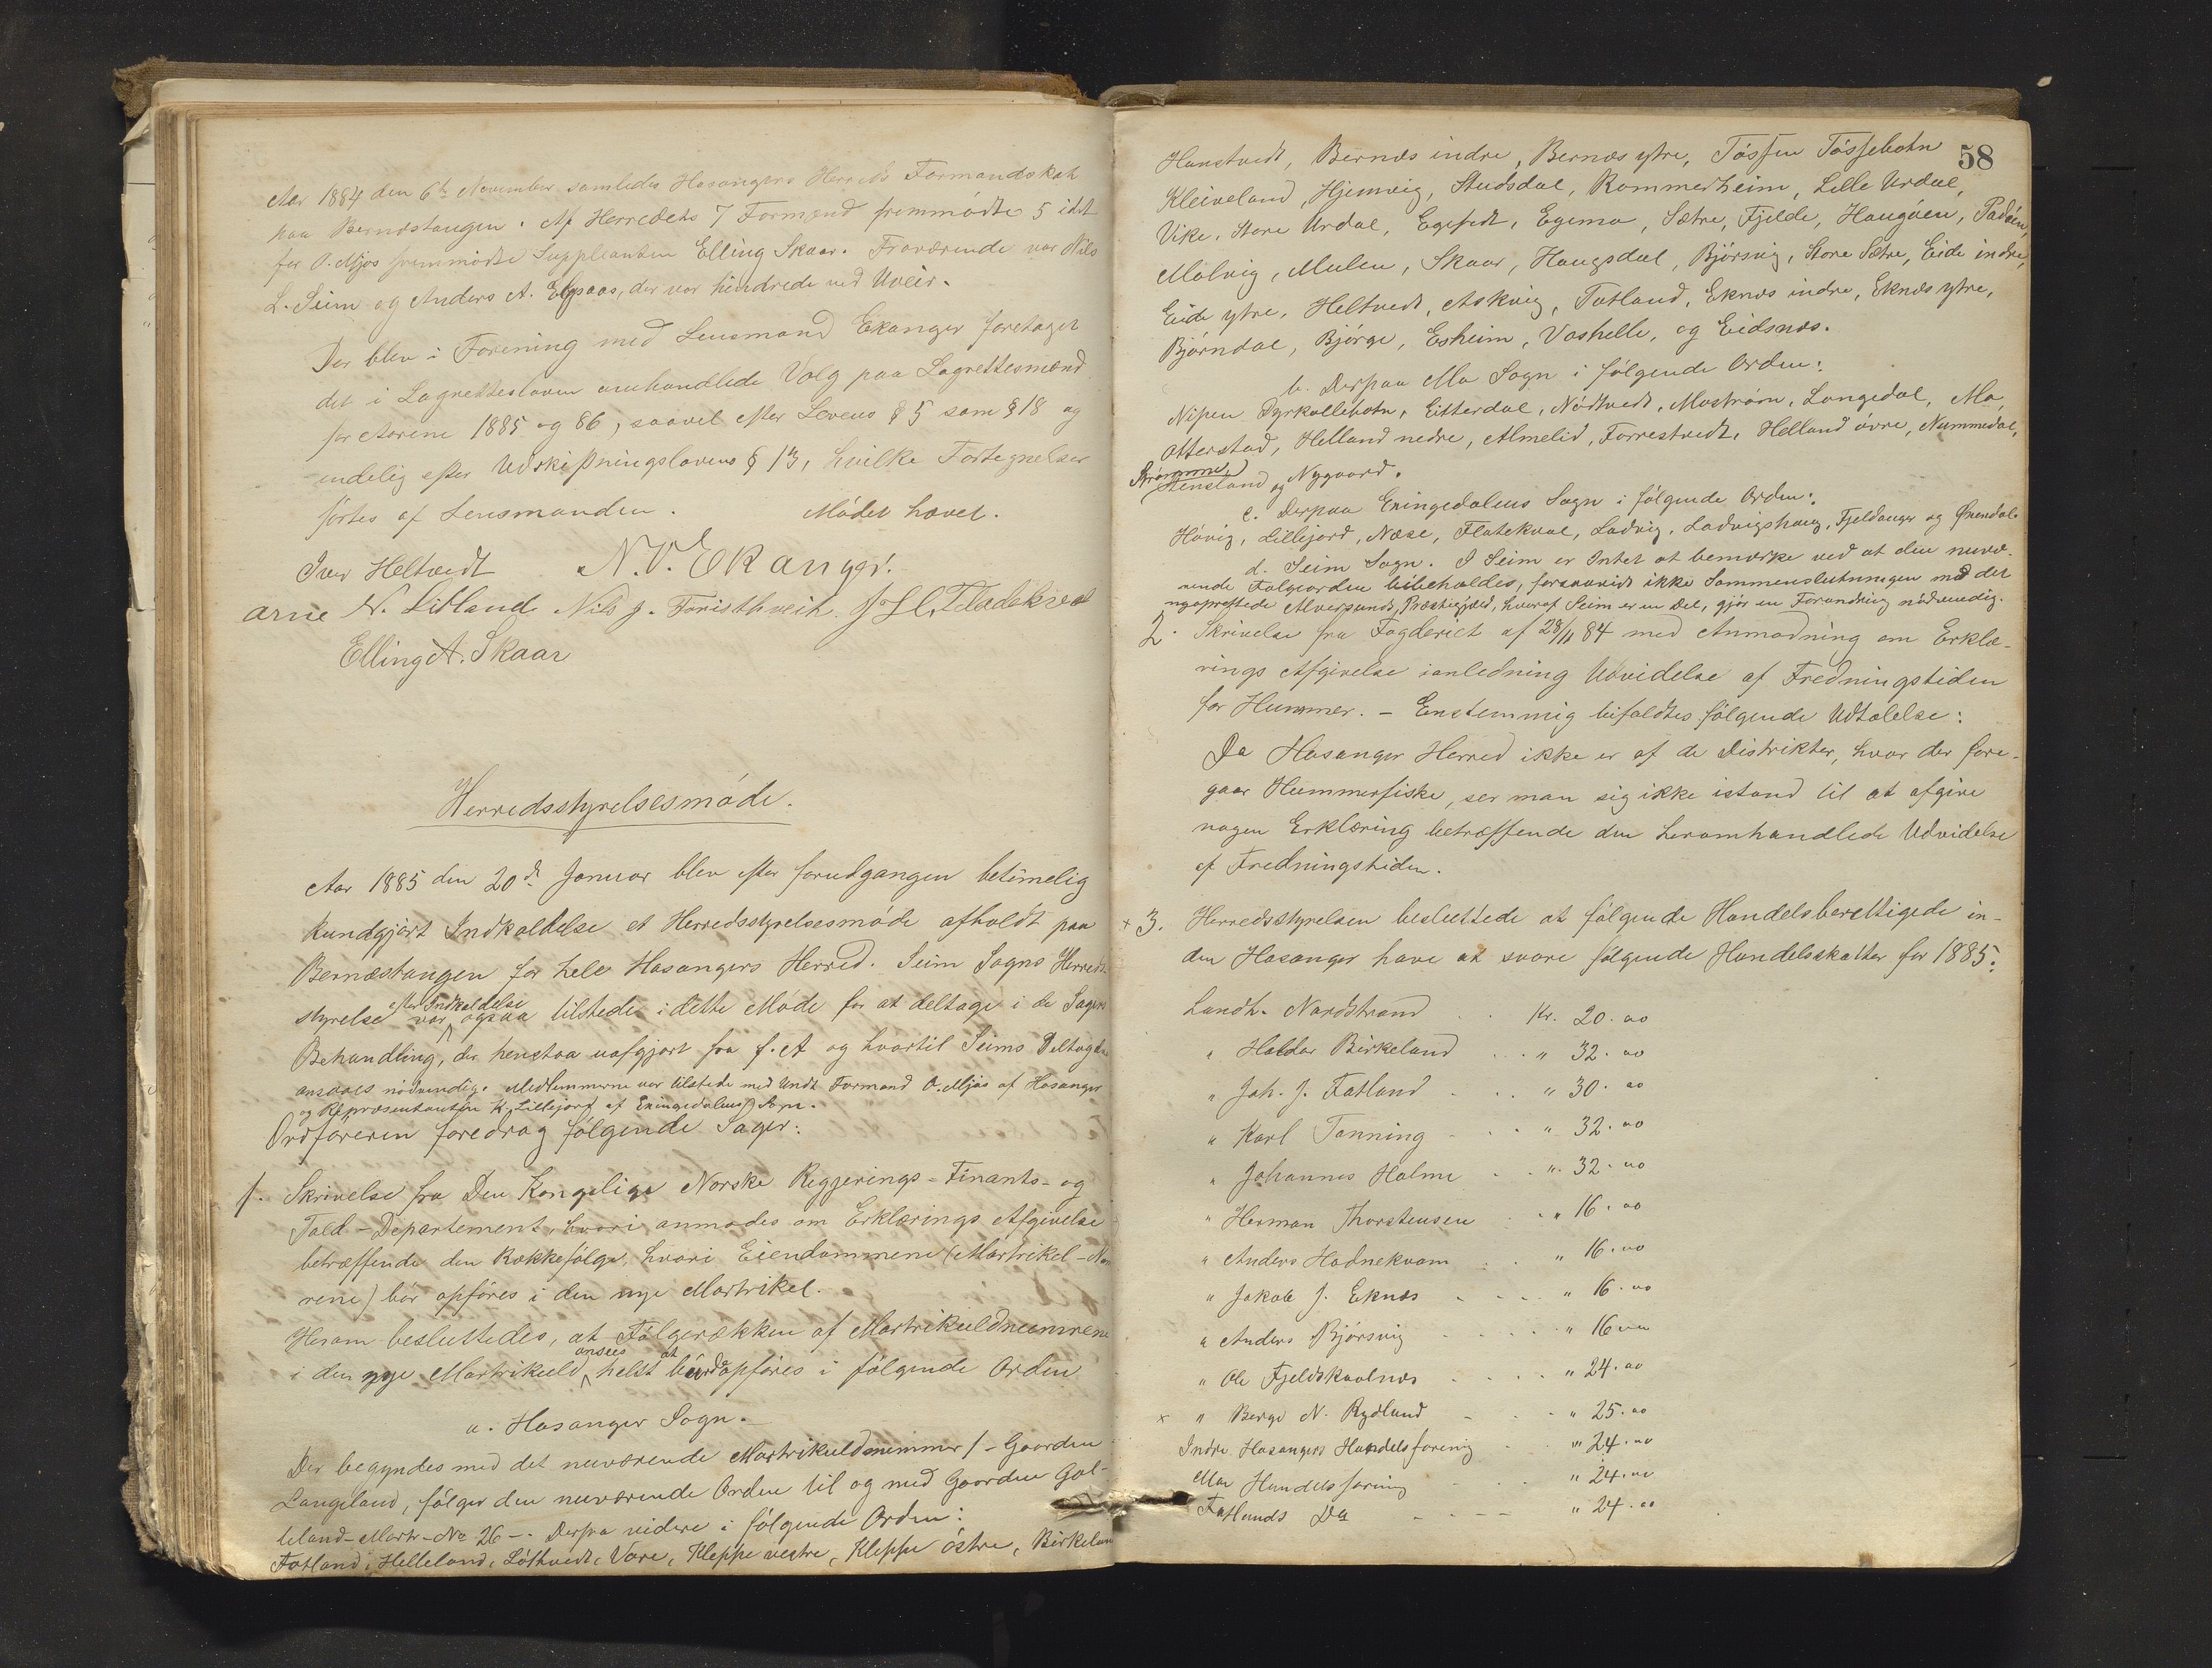 Aar 1884 den 6te November samledes Hosangers Herreds Formandskab
paa Bernæstangen. Af Herredets 7 Formænd fremmødte 5 idet
for O. Mjøs fremmødte Suppleanten Elling Skaar. Fraværende var Nils
L. Seim og Anders A. Elsaas, der var hindrede ved Uveir.
Der blev i Forening med Lensmand Ekanger foretaget
det i Lagretteloven omhandlede Valg paa Lagrettesmænd
for Aarene 1885 og 86, saavel efter Lovens § 5 som § 18 og
endelig efter Udskiftningslovens § 13, hvilke Fortegnelser
førtes af Lensmanden. Mødet hævet.
Iver Heltvedt N. V. Ekanger.
Arne N. Litland Nils J. Foristhveit
Elling A. Skaar
Herredsstyrelsesmøde.
Aar 1885 den 20de Januar blev efter forudgangen betimelig
kundgjort Indkaldelse et Herredsstyrelsesmøde afholdt paa
Bernæstangen for hele Hosangers Herred. Seim Sogns Herreds
styrelse var efter Indkaldelse ogsaa tilstede i dette Møde for at deltage i de Sagers
Behandling, der henstaa uafgjort fra f. A og hvortil Seims Deltagelse
ansaaes nødvendig. Medlemmerne var tilstede med Undt Formand O. Mjøs af Hosanger
og Repræsentanten K. Lillejord af Eningedalens Sogn.
Ordføreren foredrog følgende Sager:
1. Skrivelse fra Den Kongelige Norske Regjerings-Finants- og
Told-Departement, hvori anmodes om Erklærings Afgivelse
betræffende den Rækkefølge, hvori Eiendommene (Matrikel-No
rene) bør opføres i den nye Matrikel.
Herom besluttedes, at Følgerækken af Matrikuldnumrene
i den nye Matrikuld ansees helst at burde opføres i følgende Orden
a. Hosanger Sogn.
Der begyndes med det nuværende Matrikuldnummer 1 - Gaarden
Langeland, følger den nuværende Orden til og med Gaarden Gul-
leland Matr-No 26 -. Derfra videre i følgende Orden:
Fotland, Helleland, Løthvedt, Vare, Kleppe vestre, Kleppe østre, Birkelan
58
Hanstvedt, Bernæs indre, Bernæs ytre, Tøssen Tøssebotn
Kleiveland, Hjemvig, Studsdal, Rommerheim, Lille Urdal,
Vike, Store Urdal, Eysedt, Egemo, Sætre, Fjelde, Haugøen, Padøen,
Molvig, Mulen, Skaar, Haugsdal, Bjørsvig, Store Sætre, Eide indre,
Eide ytre, Heltvedt, Askvig, Totland, Eknæs indre, Eknæs ytre,
Bjørndal, Bjørge, Esheim, Vashelle, og Eidsnæs.
b. Derpaa Mo Sogn i følgende Orden:
Nipen Dyrkollebotn, Eitterdal, Nødtvedt, Mostraum, Langedal, Mo,
Otterstad, Helland nedre, Almelid, Forrestvedt, Helland øvre, Nummedal,
Stensland og Nygaard.
c. Derpaa Eningedalens Sogn i følgende Orden:
Høvig, Lillejord, Næse, Flatekval, Ladvig, Ladvigshaug, Fjeldanger og Ønendal.
d. Seim Sogn. I Seim er Intet at bemærke ved at den nuvæ-
rende Følgeorden bibeholdes, forsaavidt ikke Sammenslutningen med det
nyoprettede Alversunds Præstegjæld, hvoraf Seim er en Del, gjør en Forandring nødvendig.
2. Skrivelse fra Fogderiet af 28/11 84 med Anmodning om Erklæ-
rings Afgivelse ianledning Udvidelse af Fredningstiden
for Hummer. - Enstemmig bifaldtes følgende Udtalelse:
Da Hosanger Herred ikke er af de Distrikter, hvor der fore-
gaar Hummerfiske, ser man sig ikke istand til at afgive
nogen Erklæring betræffende den heromhandlede Udvidelse
af Fredningstiden.
× 3. Herredsstyrelsen besluttede at følgende Handelsberettigede in-
den Hosanger have at svare følgende Handelsskatter for 1885:
Landh. Nordstrand . . Kr. 20.00
" Haldor Birkeland . . . " 32.00
" Joh. J. Fatland . . . " 30.00
" Karl Tonning . . . " 32.00
" Johannes Holme . . " 32.00
" Herman Thorstensen . . " 16.00
" Anders Hodnekvam . . " 16.00
" Jakob J. Eknæs . . . . " 16.00
" Anders Bjørsvig . . . . " 16.00
" Ole Fjeldskaalnæs . . . . " 24.00
× " Berge N. Rydland . . . " 25.00
Indre Hosangers Handelsforening . . . " 24.00
Mo Handelsforening . . . " 24.00
Fatlands Do . . . . " 24.00